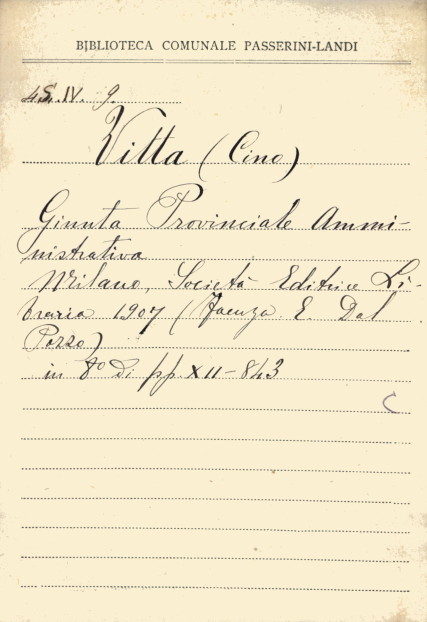 BIBLIOTECA COMUNALE PASSERINI-LANDI
4S.IV.9.
Vitta (Cino)
Giunta Provinciale Ammi-
nistrativa
Milano, Società Editrice Li-
braria 1907 (Faenza E. Dal
Pozzo)
in 8º di pp XII-843
C